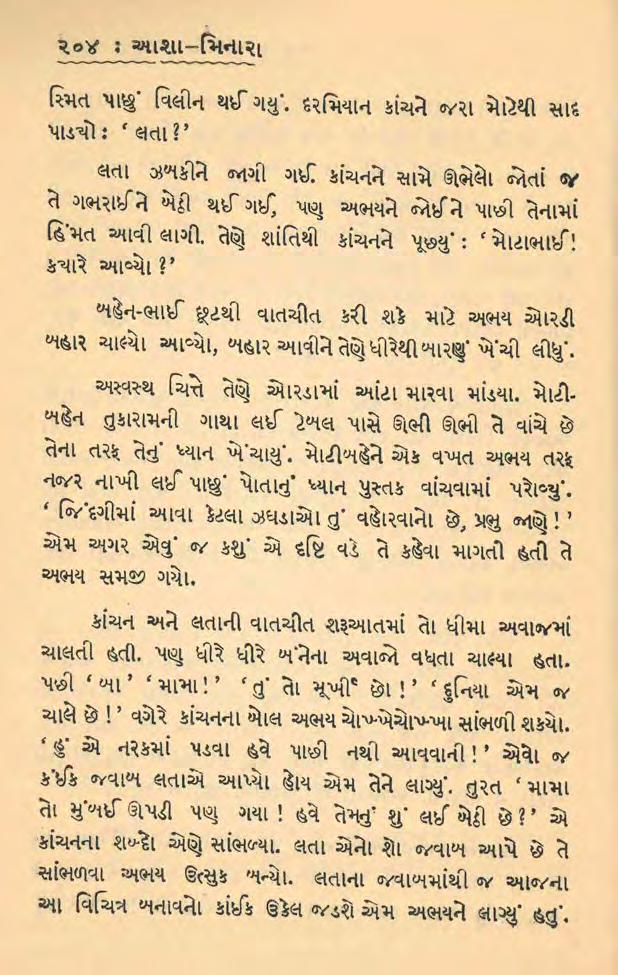 ૨૦૪ : આશા–મિનારા
સ્મિત પાછું વિલીન થઈ ગયું. દરમિયાન કાંચને જરા મોટેથી સાદ
પાડયો : ‘ લતા ?’
લતા ઝબકીને જાગી ગઈ. કાંચનને સામે ઊભેલો જોતાં જ
તે ગભરાઈને બેઠી થઈ ગઈ, પણ અભયને જોઈને પાછી તેનામાં
હિંમત આવી લાગી. તેણે શાંતિથી કાંચનને પૂછ્યું : ‘ મોટાભાઈ !
કયારે આવ્યો ?’
બહેન-ભાઈ છૂટથી વાતચીત કરી શકે માટે અભય ઓરડી
બહાર ચાલ્યો આવ્યો, બહાર આવીને તેણે ધીરેથી બારણું ખેંચી લીધું.
અસ્વસ્થ ચિત્તે તેણે ઓરડામાં આંટા મારવા માંડયા. મોટી-
બહેન તુકારામની ગાથા લઈ ટેબલ પાસે ઊભી ઊભી તે વાંચે છે
તેના તરફ તેનું ધ્યાન ખેંચાયું. મોટીબહેને એક વખત અભય તરફ
નજર નાખી લઈ પાછું પોતાનું ધ્યાન પુસ્તક વાંચવામાં પરોવ્યું.
‘ જિંદગીમાં આવા કેટલા ઝઘડાઓ તું વહોરવાનો છે, પ્રભુ જાણે ! ’
એમ અગર એવું જ કશું એ દૃષ્ટિ વડે તે કહેવા માગતી હતી તે
અભય સમજી ગયો.
કાંચન અને લતાની વાતચીત શરૂઆતમાં તો ધીમા અવાજમાં
ચાલતી હતી. પણ ધીરે ધીરે બંનેના અવાજો વધતા ચાલ્યા હતા.
પછી ‘ બા ’ ‘ મામા ! ’ ‘ તું તો મૂર્ખી છો ! ’ ‘ દુનિયા એમ જ
ચાલે છે ! ’ વગેરે કાંચનના બોલ અભય ચોખ્ખેચોખ્ખા સાંભળી શકયો.
‘ હું એ નરકમાં પડવા હવે પાછી નથી આવવાની ! ’ એવો જ
કંઈક જવાબ લતાએ આપ્યો હોય એમ તેને લાગ્યું. તુરત ‘ મામા
તો મુંબઈ ઊપડી પણ ગયા ! હવે તેમનું શું લઈ બેઠી છે ? ’ એ
કાંચનના શબ્દો એણે સાંભળ્યા. લતા એનો શો જવાબ આપે છે તે
સાંભળવા અભય ઉત્સુક બન્યો. લતાના જવાબમાંથી જ આજના
આ વિચિત્ર બનાવનો કાંઈક ઉકેલ જડશે એમ અભયને લાગ્યું હતું.